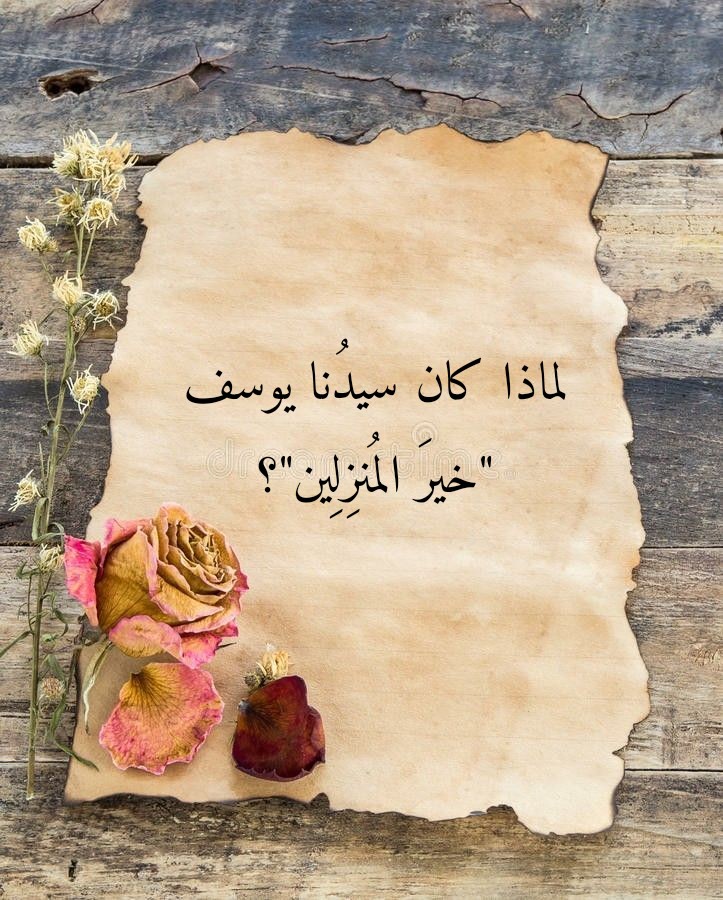 لماذا كان سيدُنا يوسف
"خيرَ المُنزِلِين"؟
dreamstime